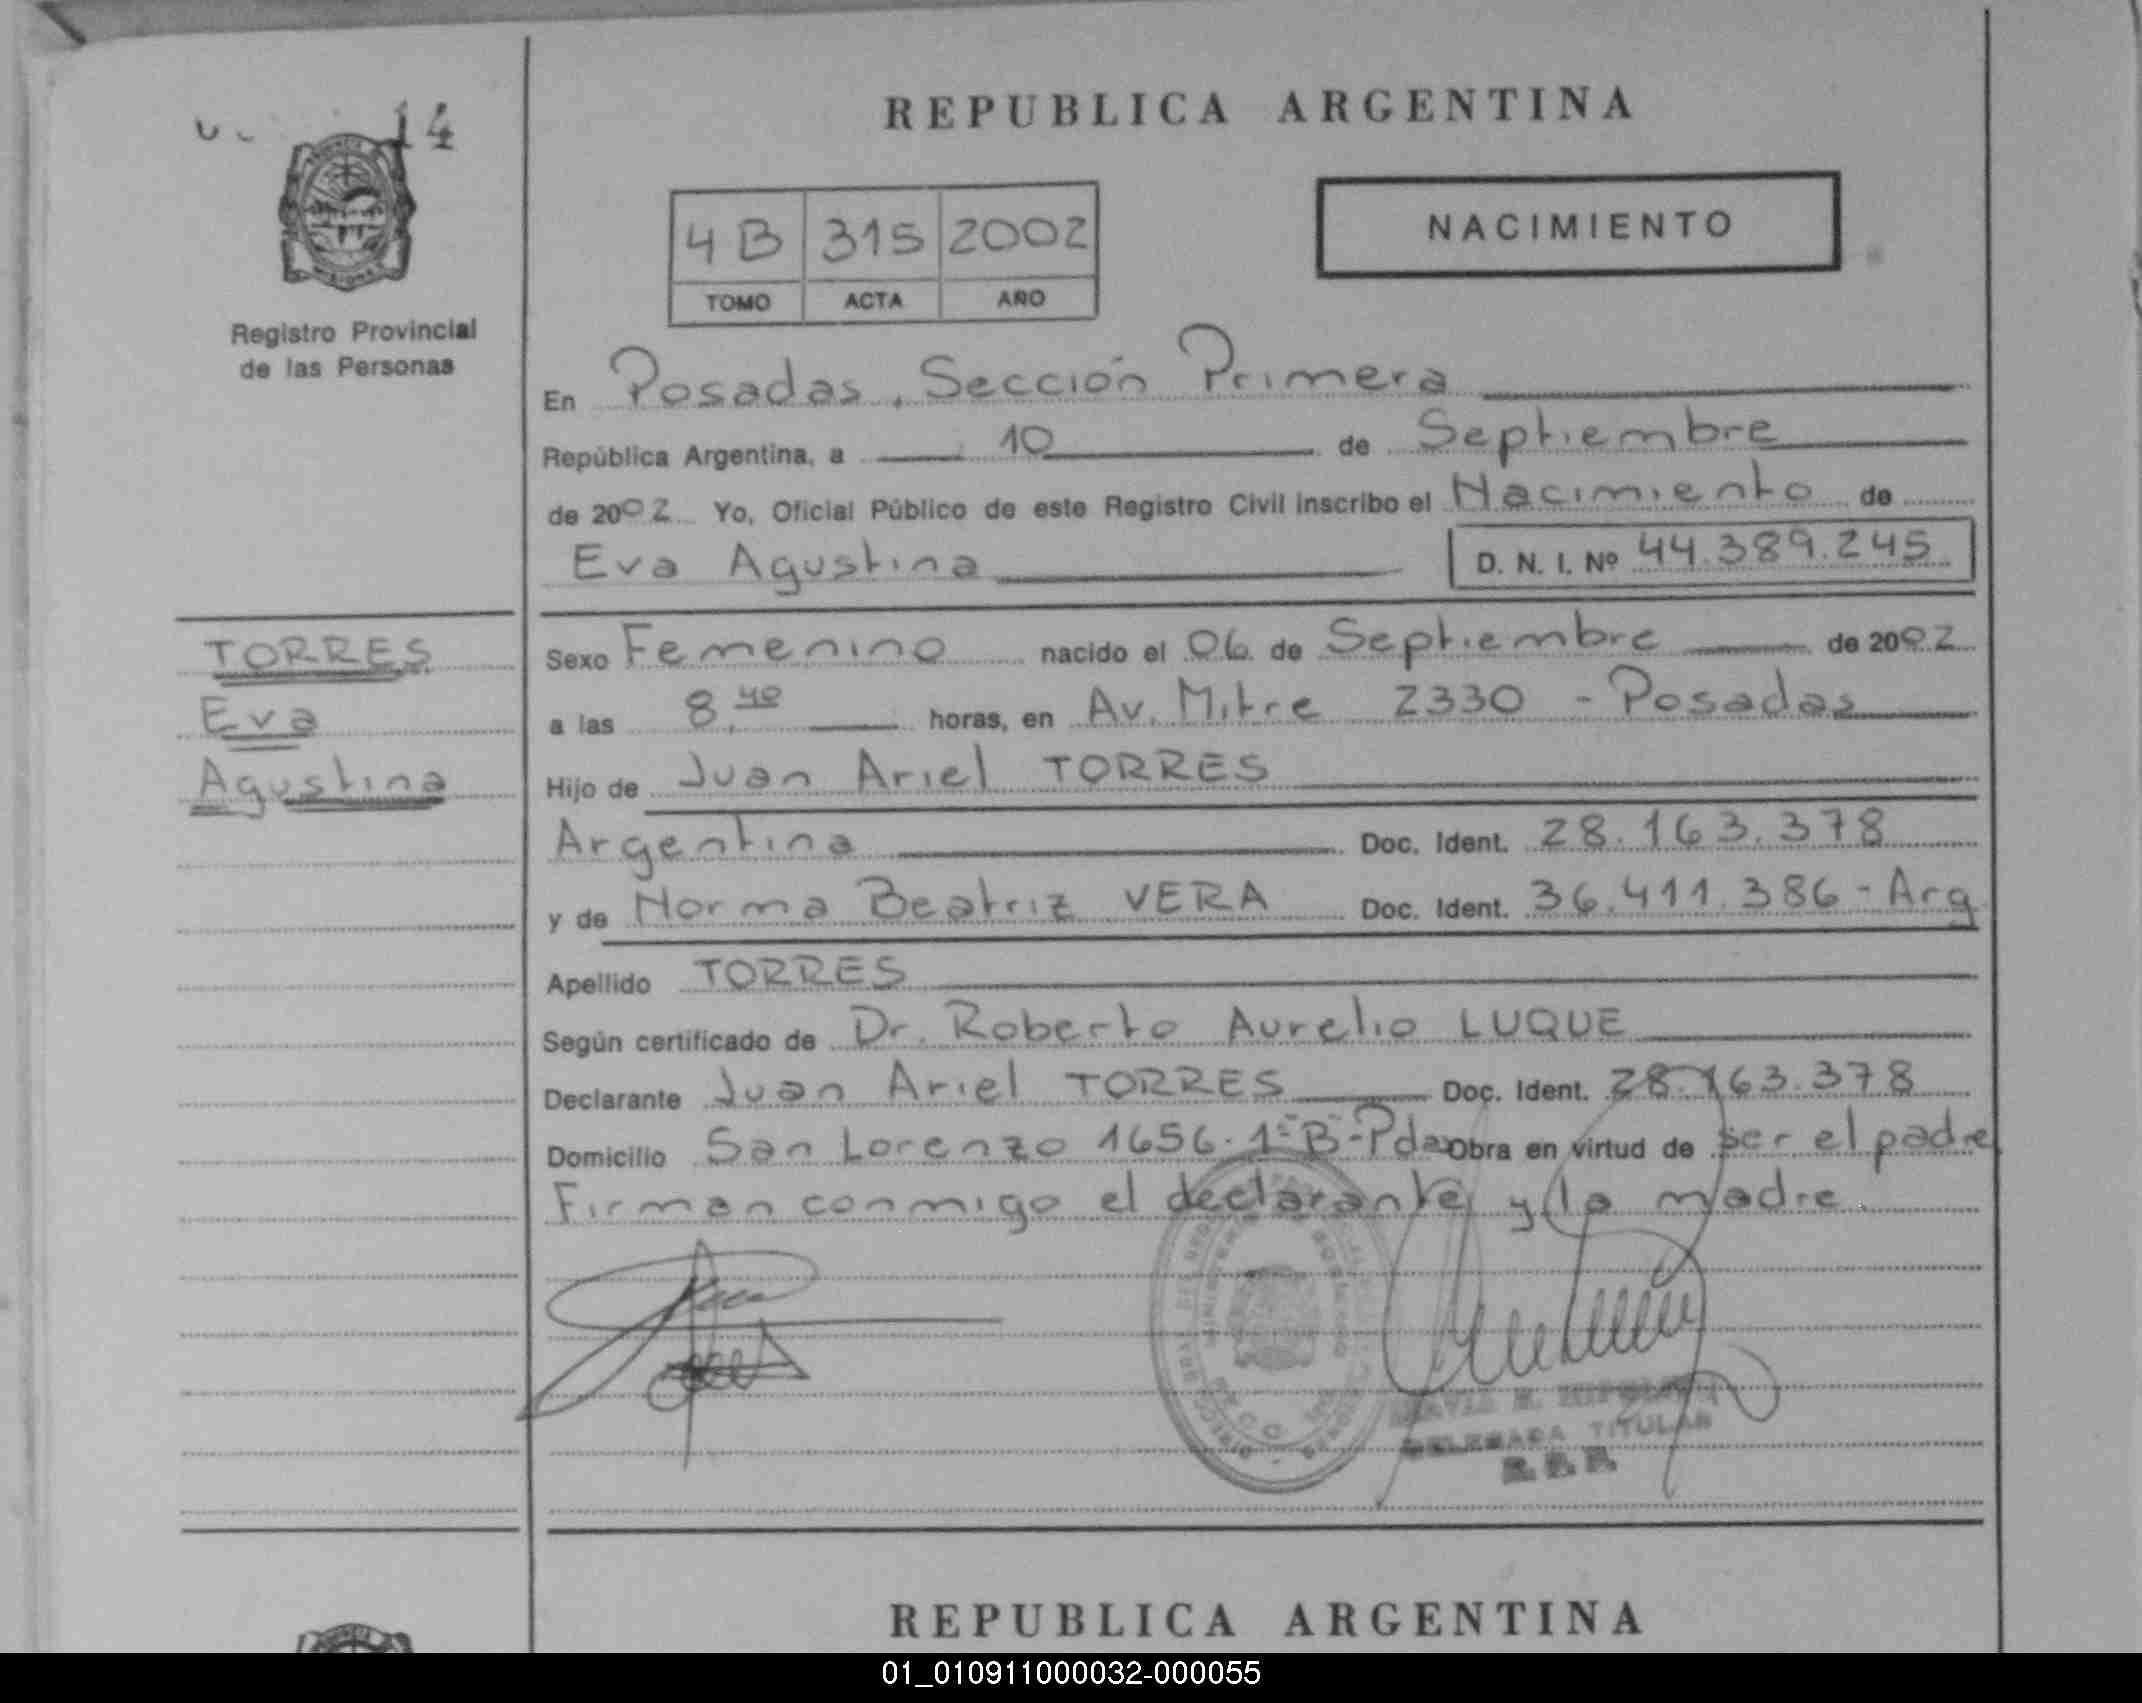 14
REPUBLICA ARGENTINA
NACIMIENTO
4B 315 2002
TOMO ACTA AÑO
Registro Provincial
de las Personas
En Posadas, Sección Primera
República Argentina, a 10 de Septiembre
de 2002 Yo, Oficial Público de este Registro Civil inscribo el Nacimiento de
Eva Agustina D. N. I. Nº 44.389.245
TORRES
Eva
Agustina
Sexo Femenino nacido el 06 de Septiembre de 2002
a las 8,40 horas, en Av. Mitre 2330 - Posadas
Hijo de Juan Ariel TORRES
Argentina Doc. Ident. 28.163.378
y de Norma Beatriz VERA Doc. Ident. 36.411.386 - Arg
Apellido TORRES
Según certificado de Dr. Roberto Aurelio LUQUE
Declarante Juan Ariel TORRES Doc. Ident. 28.163.378
Domicilio San Lorenzo 1656. 1º B - Pdas Obra en virtud de ser el padre
Firman conmigo el declarante y la madre.
DELEGADA TITULAR
REPUBLICA ARGENTINA
01_010911000032-000055